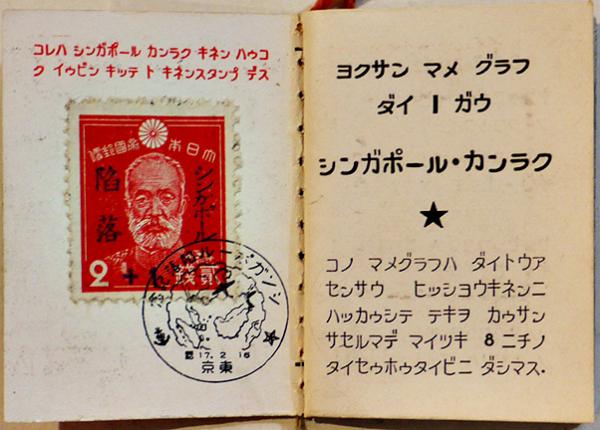 コレハ シンガポール カンラク キネン ハウコ
ク イウビン キッテ ト キネンスタンプ デス
便郵國帝本日大
シンガポール
陥落
2+
貳
17. 2. 16
京東
ヨクサン マメ グラフ
ダイ 1 ガウ
シンガポール・カンラク
★
コノ マメグラフハ ダイトウア
センサウ ヒッショウキネンニ
ハッカウシテ テキヲ カウサン
サセルマデ マイツキ 8 ニチノ
タイセウホウタイビニ ダシマス.